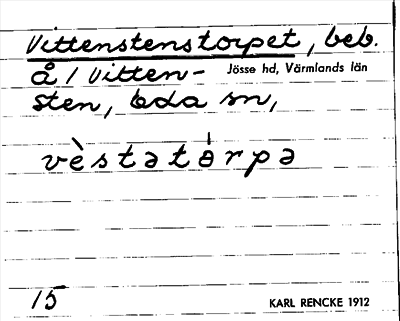 Vittenstenstorpet, beb.
å / Vitten-
Jösse hd, Värmlands län
sten, Eda sn,
vèstatårpa
15
KARL RENCKE 1912